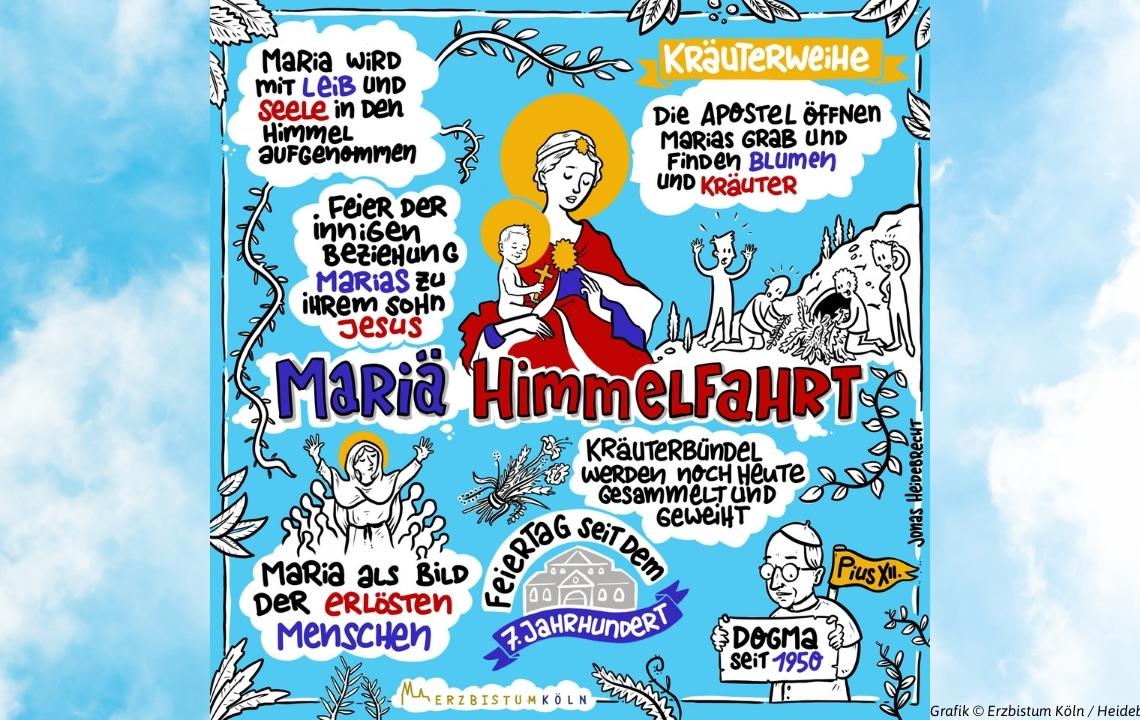 Maria wird
mit Leib und
Seele in den
Himmel
aufgenommen
Kräuterweihe
Die Apostel öffnen
Marias Grab und
finden Blumen
und Kräuter
Feier der
innigen
Beziehung
Marias zu
ihrem Sohn
Jesus
Mariä Himmelfahrt
Kräuterbündel
werden noch heute
gesammelt und
geweiht
Maria als Bild
der erlösten
Menschen
Feiertag seit dem
7. Jahrhundert
Pius XII.
Dogma
seit 1950
Jonas Heidebrecht
ERZBISTUMKÖLN
Grafik © Erzbistum Köln / Heideb